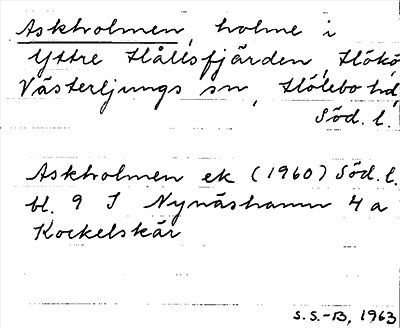 Askholmen, holme i
Yttre Hållsfjärden, Hökö,
Västerljungs sn, Hölebo hd,
Söd. l.
Askholmen ek (1960) Söd. l.
bl. 9 I Nynäshamn 4 a
Kockelskär
S.S.-B, 1963